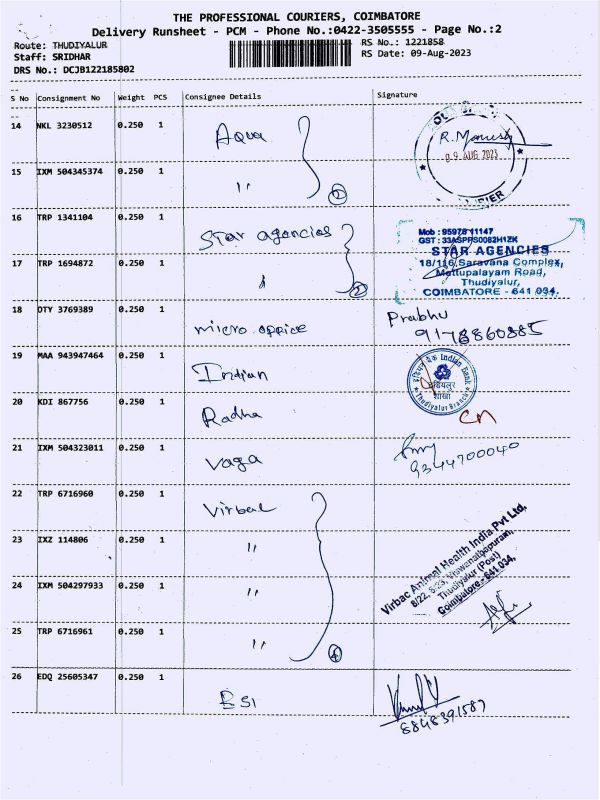 THE PROFESSIONAL COURIERS, COIMBATORE
Delivery Runsheet - PCM - Phone No.:0422-3505555 - Page No.:2
Route: THUDIYALUR
RS No.: 1221858
Staff: SRIDHAR
RS Date: 09-Aug-2023
DRS No.: DCJB122185802
S No Consignment No Weight PCS Consignee Details Signature
14 NKL 3230512 0.250 1 Aqua
09 AUG 2023
15 IXM 504345374 0.250 1 " 2
16 TRP 1341104 0.250 1 Star agencies
Mob : 95978 11147
GST : 33ASPPS0082H1ZK
STAR AGENCIES
18/116, Saravana Complex,
Mettupalayam Road,
Thudiyalur,
COIMBATORE - 641 034.
17 TRP 1694872 0.250 1 " 2
18 DTY 3769389 0.250 1 micro office Prabhu
9178860885
19 MAA 943947464 0.250 1 Indian
Indian Bank
शाखा
Thudiyalur Branch
20 KDI 867756 0.250 1 Radha
21 IXM 504323011 0.250 1 Vaga
9344700040
22 TRP 6716960 0.250 1 Virbac
23 IXZ 114806 0.250 1 "
Virbac Animal Health India Pvt Ltd,
8/22, 8/23, Viswanathapuram,
Thudiyalur (Post)
Coimbatore - 641 034.
24 IXM 504297933 0.250 1 "
25 TRP 6716961 0.250 1 " 4
26 EDQ 25605347 0.250 1 ESI
8848391587